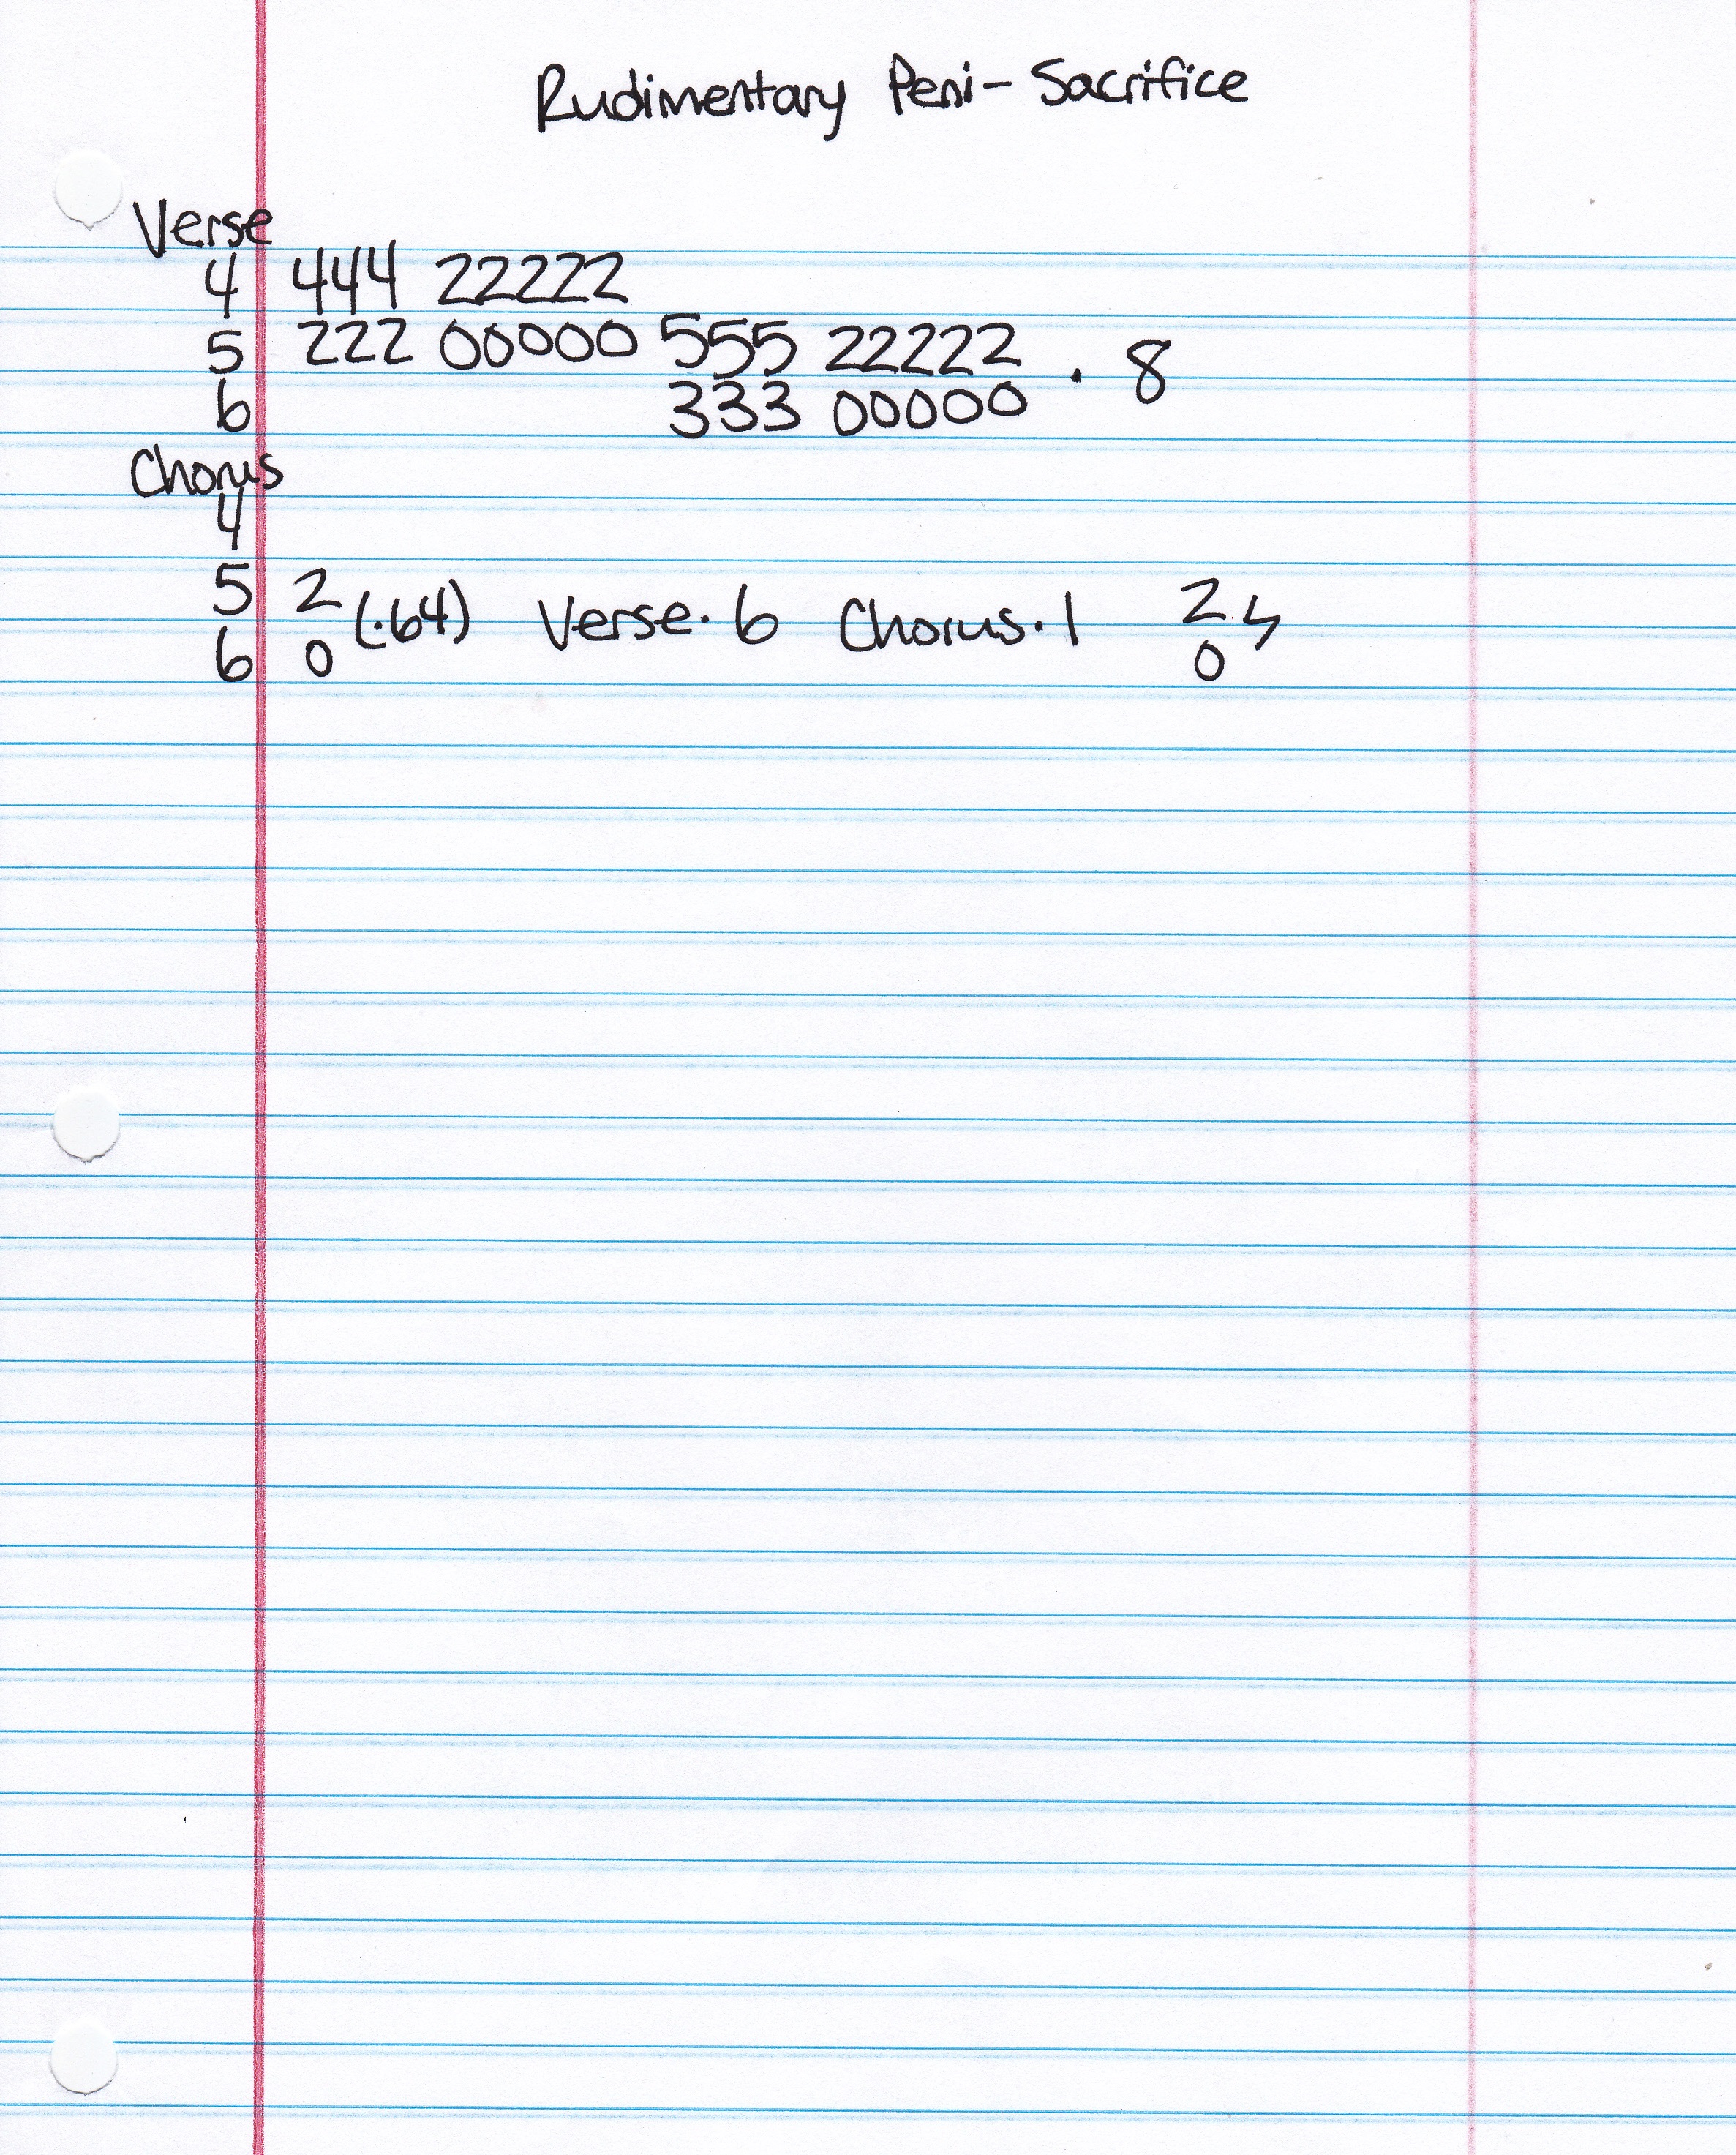 Rudimentary Peni - Sacrifice
Verse
4 444 22222
5 222 00000 555 22222
6 333 00000 . 8
Chorus
4
5 2 2
(·64) Verse · 6 Chorus · 1
6 0 0